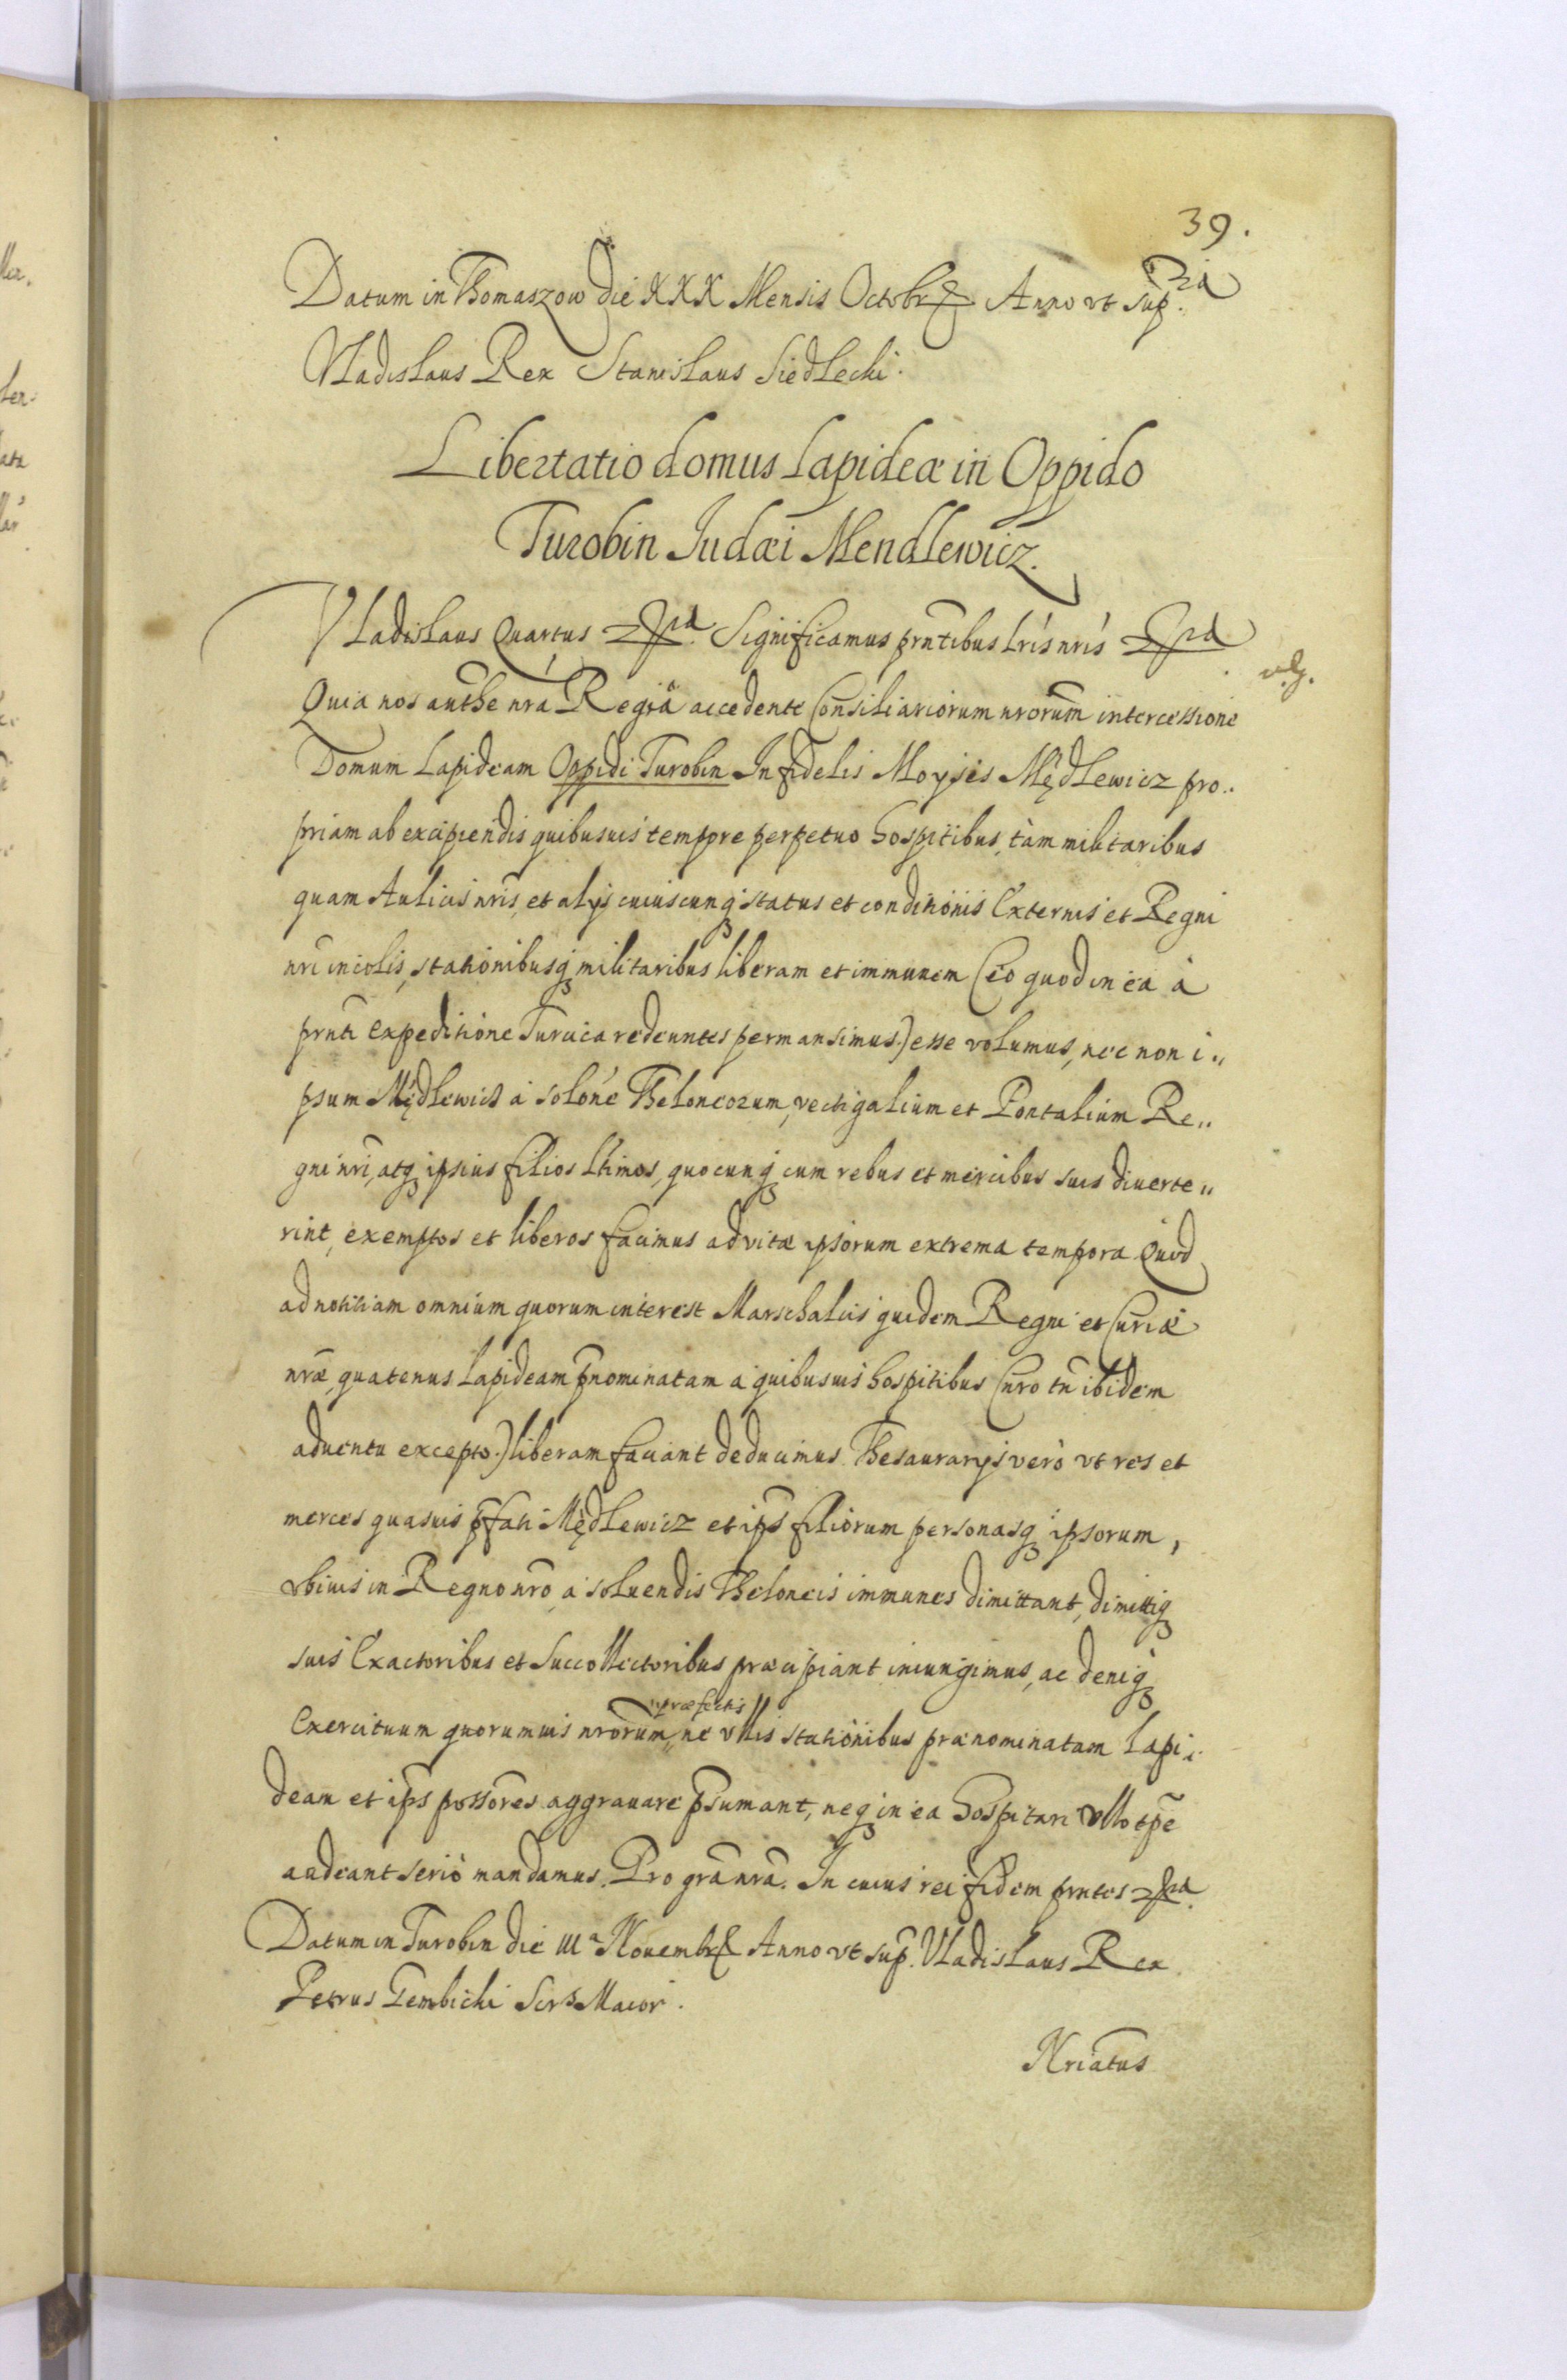 39.
Datum in Thomaszow die XXX Mensis Octobr Anno vt sup.ra
Vladislaus Rex Stanislaus Siedlecki.
Libertatio domus Lapideæ in Oppido
Turobin Judæi Mendlewicz.
Vladislaus Quartus Significamus prntibus lris nris
vlg.
Quia nos authe nrâ Regiâ accedente Consiliariorum nrorum intercessione
Domum Lapideam Oppidi Turobin Infidelis Moyses Mędlewicz pro„
priam ab excipiendis quibusuis tempore perpetuo hospitibus, tàm militaribus
quam Aulicis nris, et alijs cuiuscunq status et conditionis Externis et Regni
nri incolis, stationibusq militaribus liberam et immunem (eo quod in ea à
prnti expeditione Turcica redeuntes permansimus.) esse volumus, nec non i„
psum Mędlewicz à solone Theloneorum, vectigalium et Pontalium Re„
gni nri, atq ipsius filios lhimos, quocunq cum rebus et mercibus suis diuerte„
rint, exemptos et liberos facimus ad vitæ ipsorum extrema tempora Quod
ad notitiam omnium quorum interest Marschalcis quidem Regni et Curiæ
nræ, quatenus Lapideam pnominatam à quibusuis hospitibus (nro tn ibidem
aduentu excepto.) liberam faciant deducimus. Thesaurarijs verò vt res et
merces quasuis pfati Mędlewicz et ips filiorum personasq ipsorum,
vbiuis in Regno nro à soluendis Theloneis immunes dimittant, dimittiq
suis Exactoribus et Succollectoribus præcipiant iniungimus, ac deniq
præfectis
Exercituum quorumuis nrorum, ne vllis stationibus prænominatam Lapi„
deam et ips possores aggrauare psumant, neq in ea hospitari vllo tpe
audeant seriò mandamus. Pro gra nra. In cuius rei fidem prntes
Datum in Turobin die IIIa Nouembr Anno vt sup. Vladislaus Rex
Petrus Gembicki Scrs Maior.
Nriatus